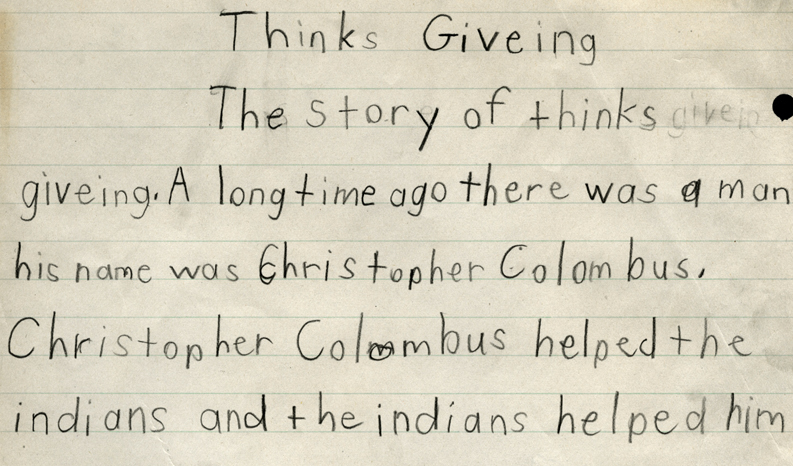 Thinks Giveing
The story of thinks givein
giveing. A long time ago there was a man
his name was Christopher Colombus.
Christopher Colombus helped the
indians and the indians helped him